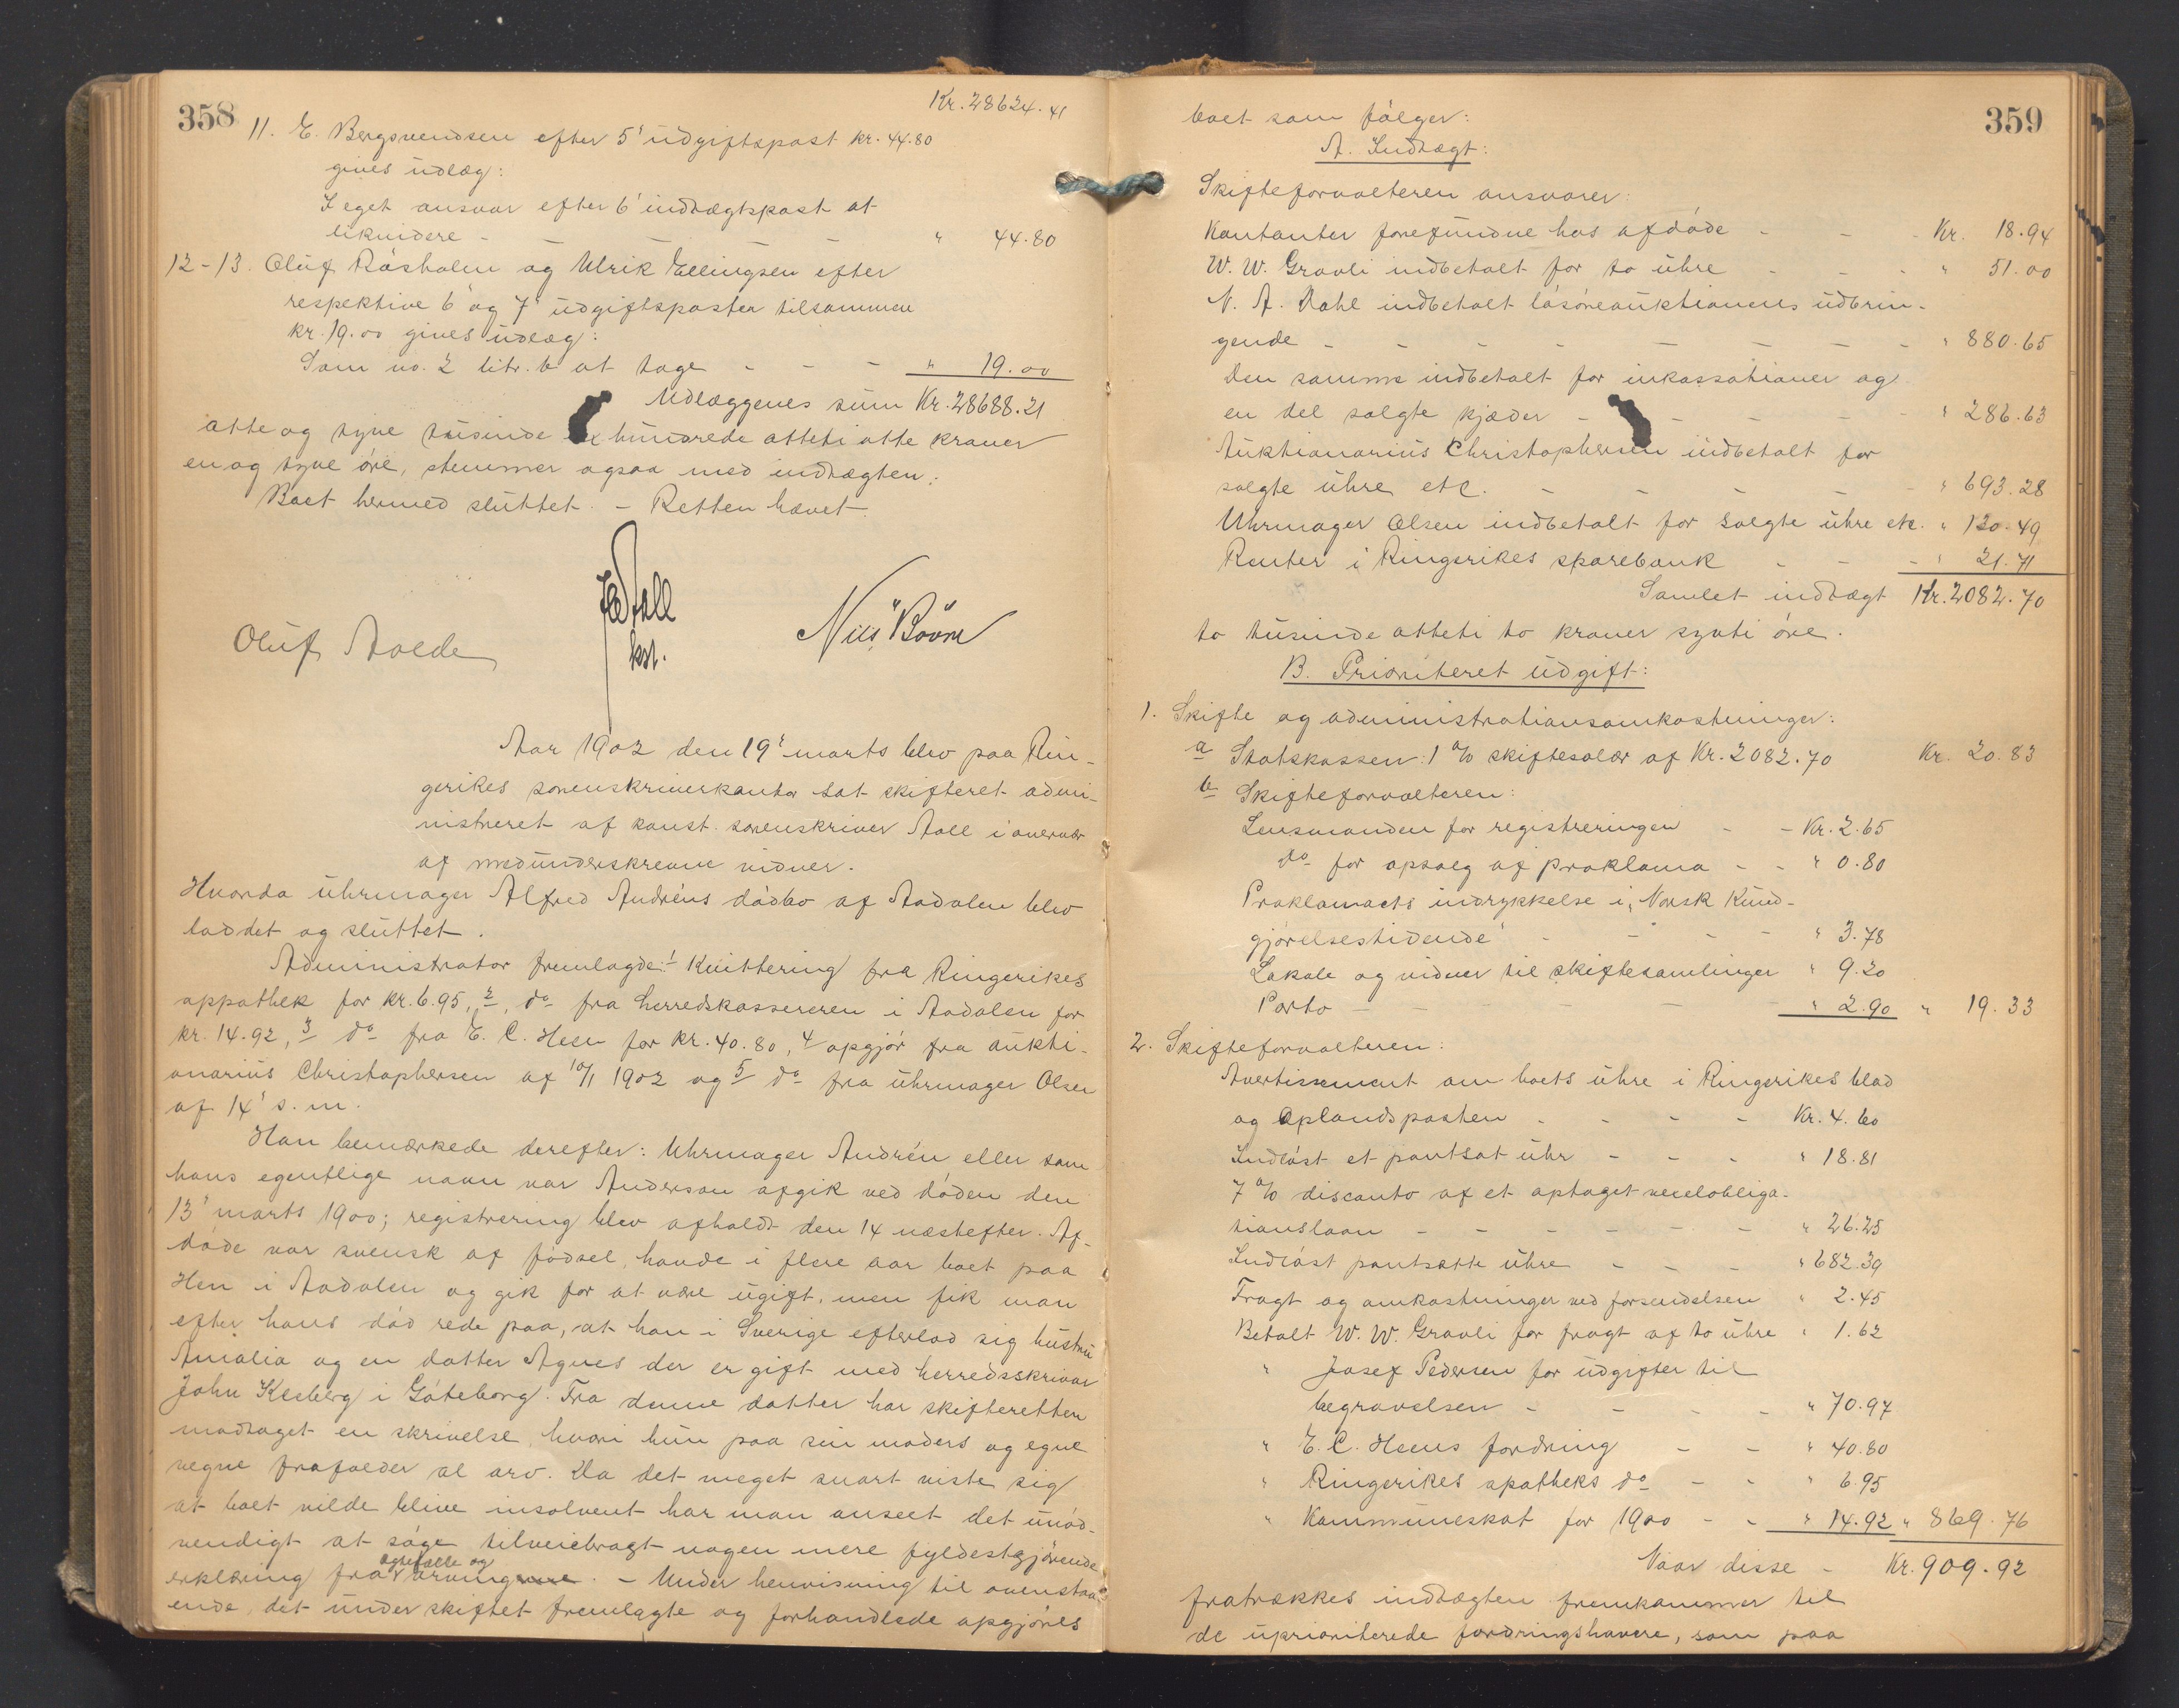 358
Kr. 28624.41
11. E. Bergsvendsen efter 5' udgiftspost kr. 44.80
gives udlæg:
I eget ansvar efter 6' indtægtspost at
likvidere - - - - " 44.80
12-13. Oluf Røsholm og Ulrik Ellingsen efter
respektive 6' og 7' udgiftsposter tilsammen
kr. 19.00 gives udlæg:
Som no. 2 litr. b at tage - - - " 19.00
Udlæggenes sum Kr. 28688.21
otte og tyve tusinde hundrede otteti otte kroner
en og tyve øre, stemmer ogsaa med indtægten.
Boet hermed sluttet. - Retten hævet.
Oluf Aalde
kst.
Nils Bövre
Aar 1902 den 19' marts blev paa Rin-
gerikes sorenskriverkontor sat skifteret admi-
nistreret af konst. sorenskriver Aall i overvær
af medunderskrevne vidner.
Hvorda uhrmager Alfred Andréns dødsbo af Aadalen blev
loddet og sluttet.
Administrator fremlagde: 1 Kvittering fra Ringerikes
appothek for kr. 6.95, 2, do fra herredskassereren i Aadalen for
kr. 14.92, 3 do fra E. C. Heen for kr. 40.80, 4 opgjør fra aukti-
onarius Christophersen af 10/1 1902 og 5 do fra uhrmager Olsen
af 14' s. m.
Han bemærkede derefter: Uhrmager Andrén eller som
hans egentlige navn var Anderson afgik ved døden den
13' marts 1900; registrering blev afholdt den 14 næstefter. Af-
døde var svensk af fødsel, havde i flere aar boet paa
Hen i Aadalen og gik for at være ugift, men fik man
efter hans død rede paa, at han i Sverige efterlod sig hustru
Amalia og en datter Agnes der er gift med herredsskrivar
John Kleberg i Gøteborg. Fra denne datter har skifteretten
modtaget en skrivelse, hvori hun paa sin moders og egne
vegne frafalder al arv. Da det meget snart viste sig
at boet vilde blive insolvent har man anseet det unød-
vendigt at søge tilveiebragt nogen mere fyldestgjørende
ægtefælle og
erklæring fra arvingerne. - Under henvisning til ovenstaa-
ende, det under skiftet fremlagte og forhandlede opgjøres
359
boet som følger:
A. Indtægt:
Skifteforvalteren ansvarer:
Kontanter forefundne hos afdøde - - - Kr. 18.94
W. W. Gravli indbetalt for to uhre - - - " 51.00
N. A. Dahl indbetalt løsøreauktionens udbrin-
gende - - - - - - - - " 880.65
Den samme indbetalt for inkassationer og
en del solgte kjæder - - - - - " 286.63
Auktionarius Christophersen indbetalt for
solgte uhre etc. - - - - - " 693.28
Uhrmager Olsen indbetalt for solgte uhre etc. " 130.49
Renter i Ringerikes sparebank - - - " 21.71
Samlet indtægt Kr. 2082.70
to tusinde otteti to kroner sytti øre.
B. Prioriteret udgift:
1. Skifte og administrationsomkostninger:
a Statskassen: 1 % skiftesalær af Kr. 2082.70 Kr. 20.83
b Skifteforvalteren:
Lensmanden for registreringen - - Kr. 2.65
do for opslag af proklama - - " 0.80
Proklamaets indrykkelse i "Norsk Kund-
gjørelsestidende" - - - - " 3.78
Lokale og vidner til skiftesamlinger " 9.20
Porto - - - - - " 2.90 " 19.33
2. Skifteforvalteren:
Avertissement om boets uhre i Ringerikes blad
og Oplandsposten - - - - Kr. 4.60
Indløst et pantsat uhr - - - " 18.81
7 % disconto af et optaget vexelobliga-
tionslaan - - - - - - " 26.25
Indløst pantsatte uhre - - - " 682.39
Fragt og omkostninger ved forsendelsen " 2.45
Betalt W. W. Gravli for fragt af to uhre " 1.62
" Josef Pedersen for udgifter til
begravelsen - - - - " 70.97
" E. C. Heens fordring - - " 40.80
" Ringerikes apotheks do - - " 6.95
" Kommuneskat for 1900 - - " 14.92 " 869.76
Naar disse - Kr. 909.92
fratrækkes indtægten fremkommer til
de uprioriterede fordringshavere, som paa